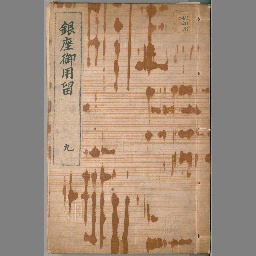 銀座御用留
九